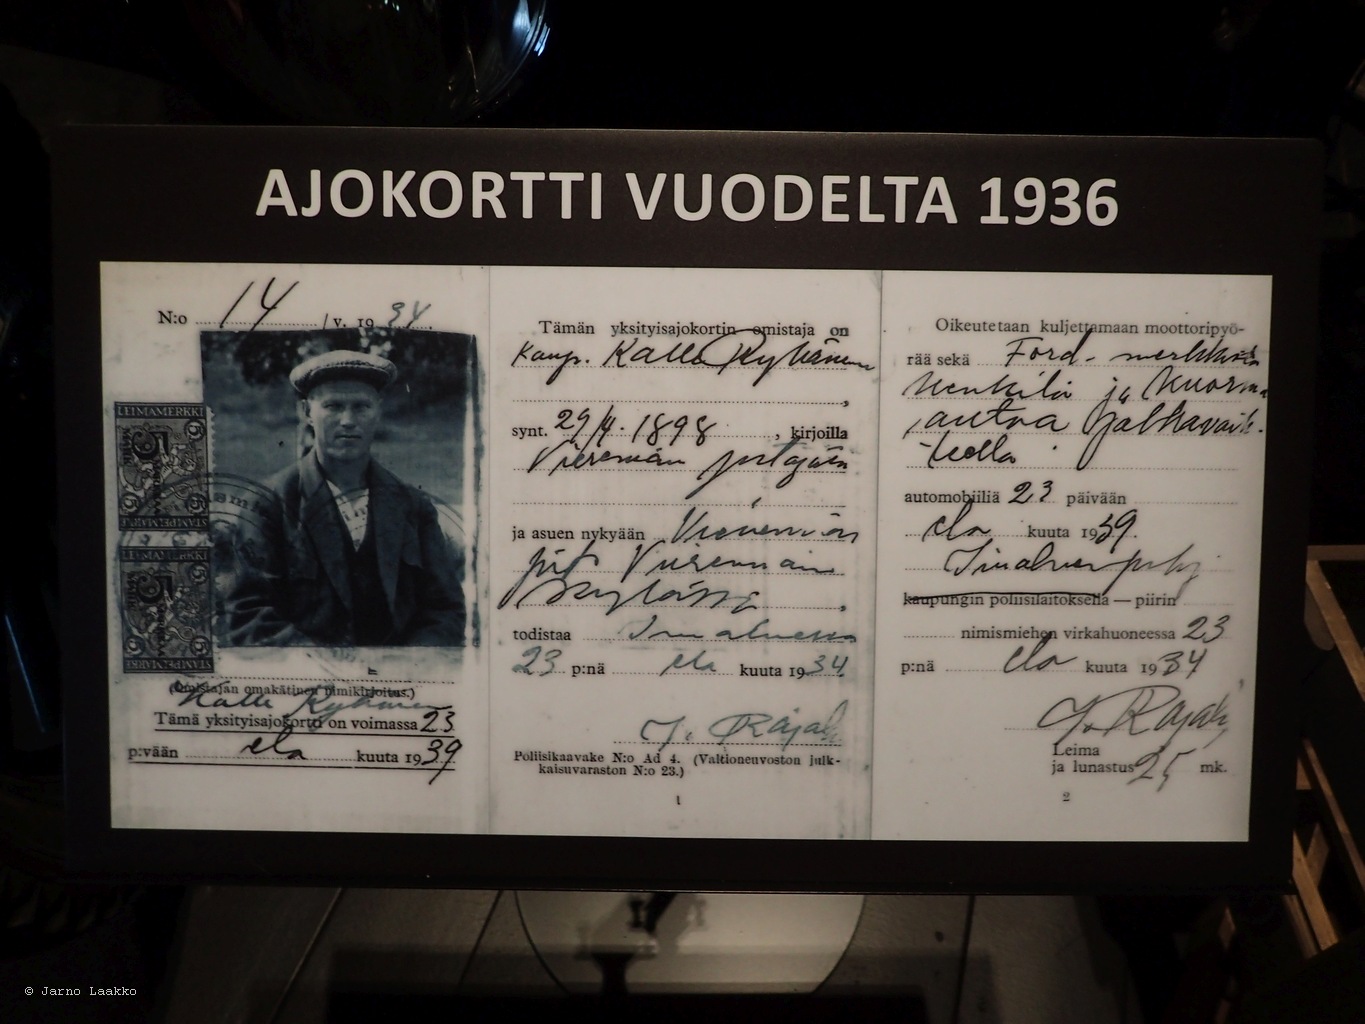 AJOKORTTI VUODELTA 1936
N:o 14 / v. 1934.
LEIMAMERKKI
5 5
MARKKAA
STÄMPELMÄRKE
LEIMAMERKKI
5 5
MARKKAA
STÄMPELMÄRKE
(Omistajan omakätinen nimikirjoitus.)
Kalle
Tämä yksityisajokortti on voimassa 23
p:vään elo kuuta 1939
Tämän yksityisajokortin omistaja on
Kaup. Kalle
,
synt. 29/4. 1898 , kirjoilla
Vieremän
ja asuen nykyään Vieremän
pit. Vieremän
kylässä .
todistaa
23 p:nä elo kuuta 1934.
J. Rajal
Poliisikaavake N:o Ad 4. (Valtioneuvoston julk-
kaisuvaraston N:o 23.)
1
Oikeutetaan kuljettamaan moottoripyö-
rää sekä Ford-merkkistä
henkilö ja kuorma
autoa jalkavaih-
teella
automobiiliä 23 päivään
elo kuuta 1939.
kaupungin poliisilaitoksella — piirin
nimismiehen virkahuoneessa 23
p:nä elo kuuta 1934
J. Rajal
Leima
ja lunastus 25 mk.
2
© Jarno Laakko